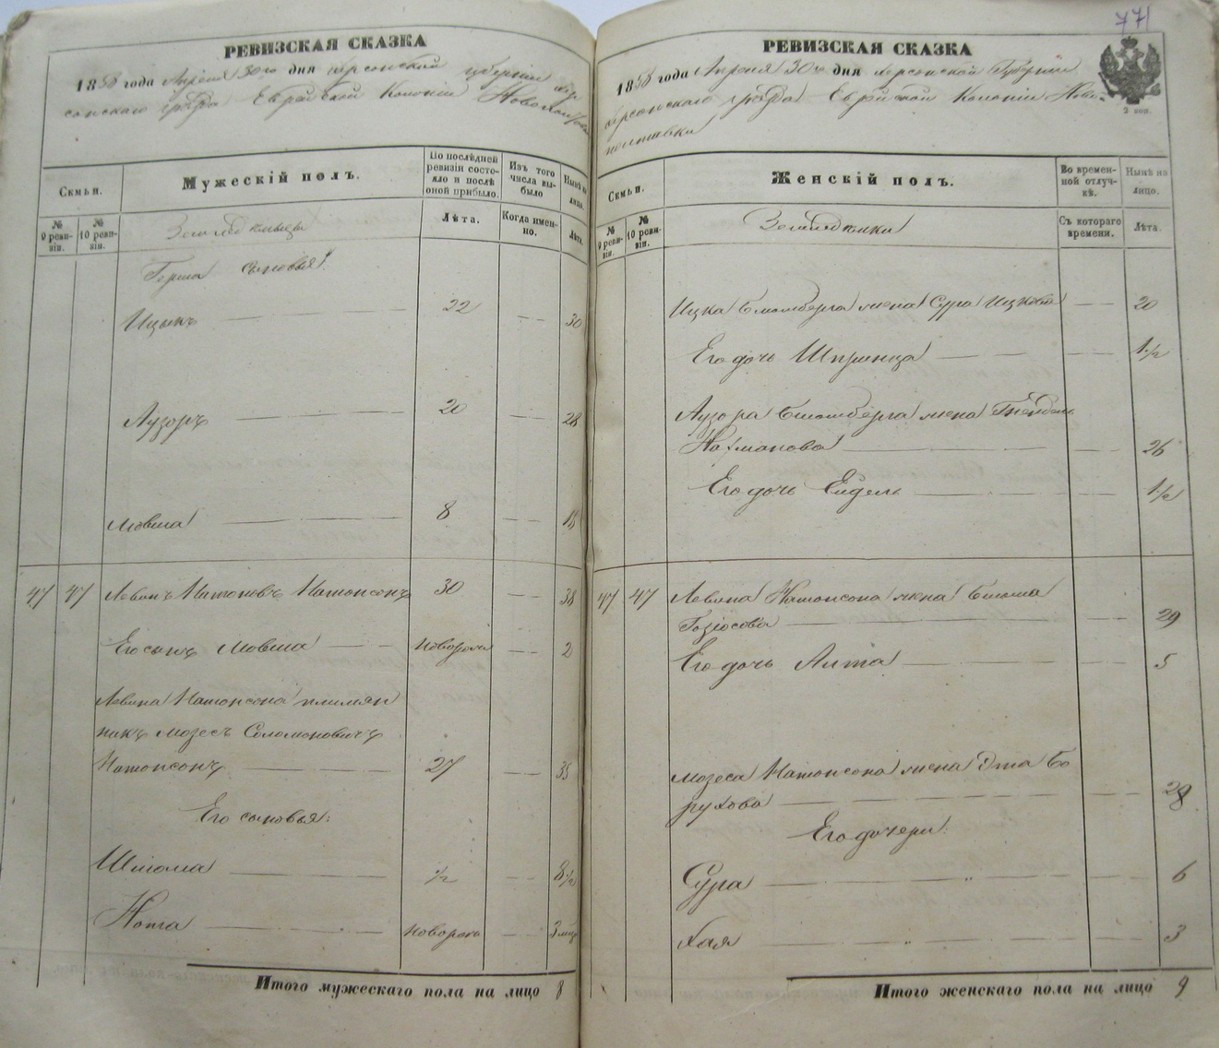 РЕВИЗСКАЯ СКАЗКА
1858 года Апреля 30го дня Херсонской губернии Хер
сонскаго уѣзда Еврейской Колоніи Новополтавки
Семьи.
Мужескій полъ.
По послѣдней ревизіи состояло и послѣ оной прибыло.
Изъ того числа выбыло
Нынѣ на лицо.
№ 9 ревизіи.
№ 10 ревизіи.
Земледельцы
Лѣта.
Когда именно.
Лѣта.
Герша сыновья:
Ицыкъ 22 30
Лузоръ 20 28
Мовша 8 16
47 47 Левинъ Натоновъ Натонсонъ 30 38
Его сынъ Мовша новорож 2
Левина Натонсона племян
никъ Мозесъ Соломоновичъ
Натонсонъ 27 35
Его сыновья:
Шлома 1/2 8 1/2
Нота новорож 3 мѣс
Итого мужескаго пола на лицо 8
771
РЕВИЗСКАЯ СКАЗКА
1858 года Апреля 30го дня Херсонской Губерніи
Херсонскаго уѣзда Еврейской Колоніи Ново-
полтавки
2 коп.
Семьи.
Женскій полъ.
Во временной отлучкѣ.
Нынѣ на лицо.
№ 9 ревизіи.
№ 10 ревизіи.
Съ котораго времени.
Лѣта.
Ицка Бломберга жена Сура Ицкова 20
Его дочь Шпринца 1 1/2
Лузора Бломберга жена
Нахманова 26
Его дочь Ейдель 1/2
47 47 Левина Натонсона жена Блюма
29
Его дочь Алта 5
Мозеса Натонсона жена Эта Бо
рухова 28
Его дочери:
Сура 6
Хая 3
Итого женскаго пола на лицо 9